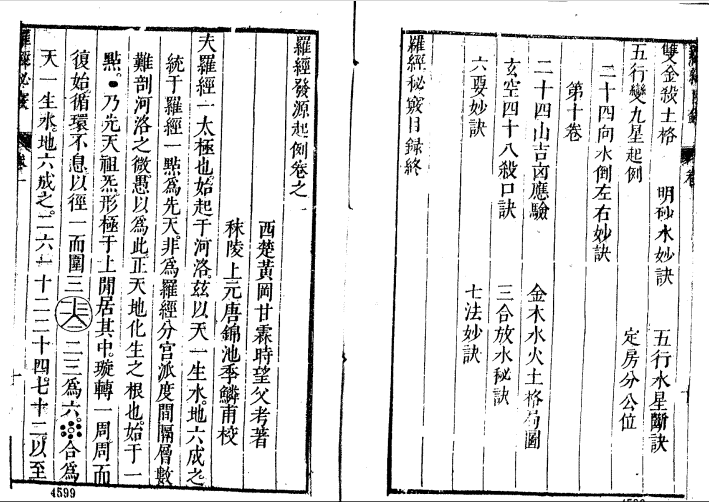 雙金殺土格　明砂水妙訣　五行水星斷訣
五行變九星起例　定房分公位
二十四向水倒左右妙訣
第十卷
二十四山吉凶應驗　金木水火土格局圖
玄空四十八殺口訣　三合放水秘訣
六要妙訣　七法妙訣
羅經秘竅目録終
羅經發源起例卷之一
西楚黃岡甘霖時望父考著
秣陵上元唐錦池季鱗甫校
夫羅經一太極也始起于河洛玆以天一生水。地六成之。
統于羅經一點爲先天。非爲羅經分宮派度間隔層數
難剖河洛之微愚以爲此正天地化生之根也。始于一
點。乃先天祖炁形極于上閒居其中。璇轉一周周而
復始循環不息以徑一而圍三 二三爲六 合爲
天一生水。地六成之。二六一十二。二十四。七十二。以至
羅經秘竅
4599